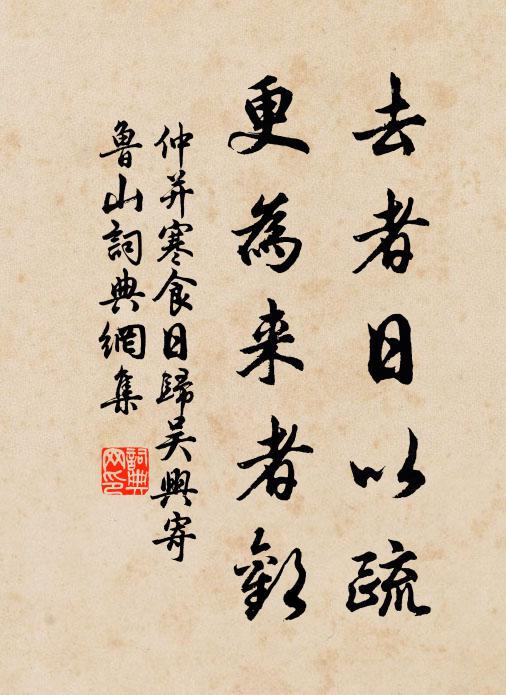 去者日以疏
更為来者歡
仲并寒食日歸吴興寄
魯山詞典網集
詞典
网印